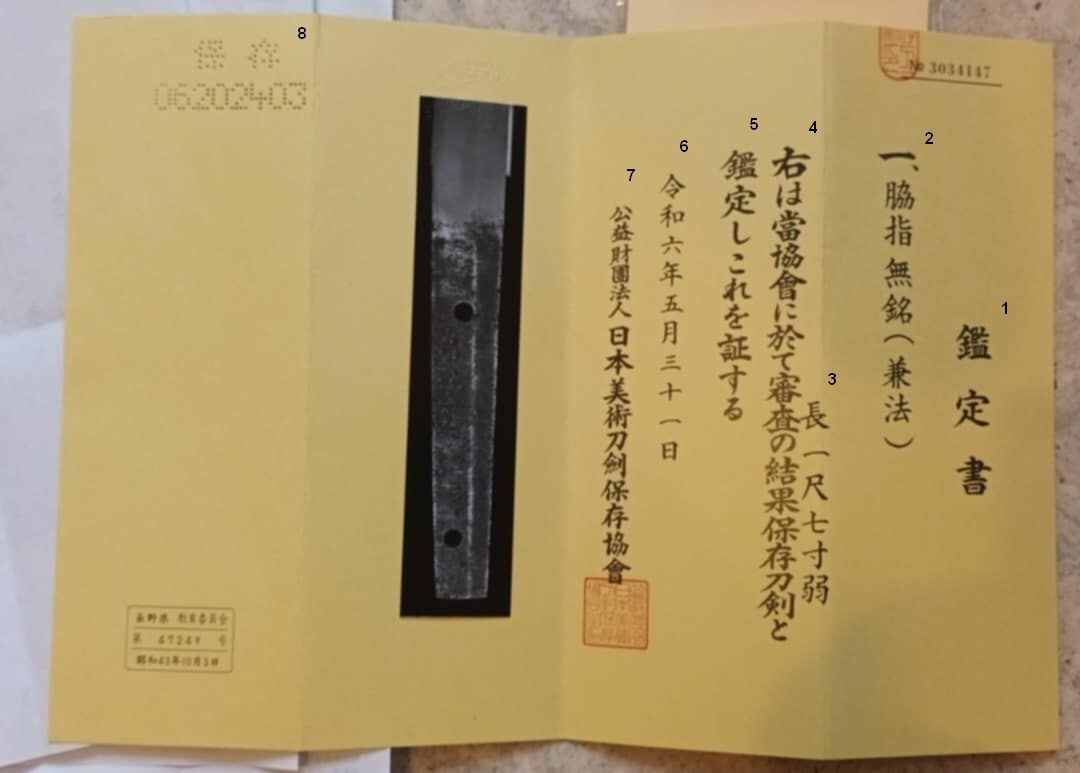 No 3034147
1
鑑定書
2
一、脇指 無銘(兼法)
3
長 一尺七寸弱
4
右は當協會に於て審査の結果保存刀剣と
5
鑑定しこれを証する
6
令和六年五月三十一日
7
公益財團法人 日本美術刀剣保存協會
8
保存
06202403
長野県 教育委員会
第 47249 号
昭和43年10月3日